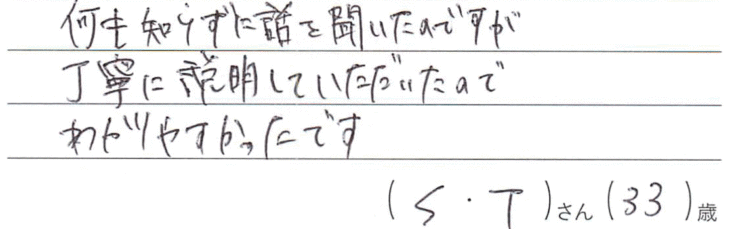 何も知らずに話を聞いたのですが
丁寧に説明していただいたので
わかりやすかったです
(S・T)さん(33)歳